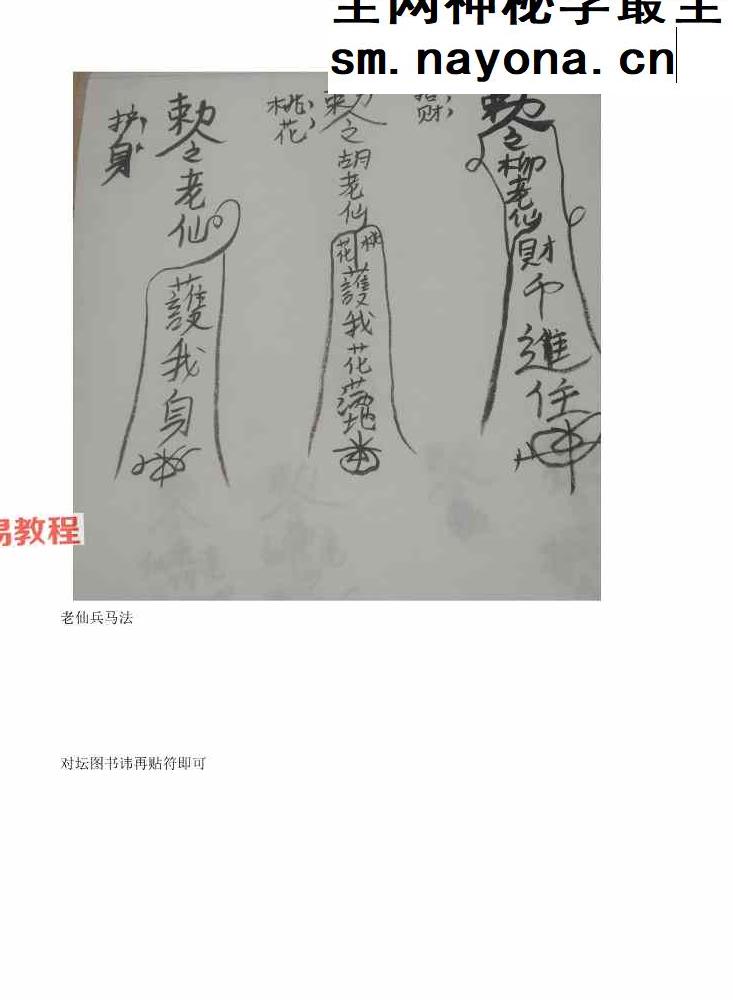 全网神秘学最全
sm.nayona.cn
护身
勅令老仙
護我身
桃花
勅令胡老仙
桃花
護我花
招财
勅令柳老仙
財
進
易教程
老仙兵马法
对坛图书讳再贴符即可